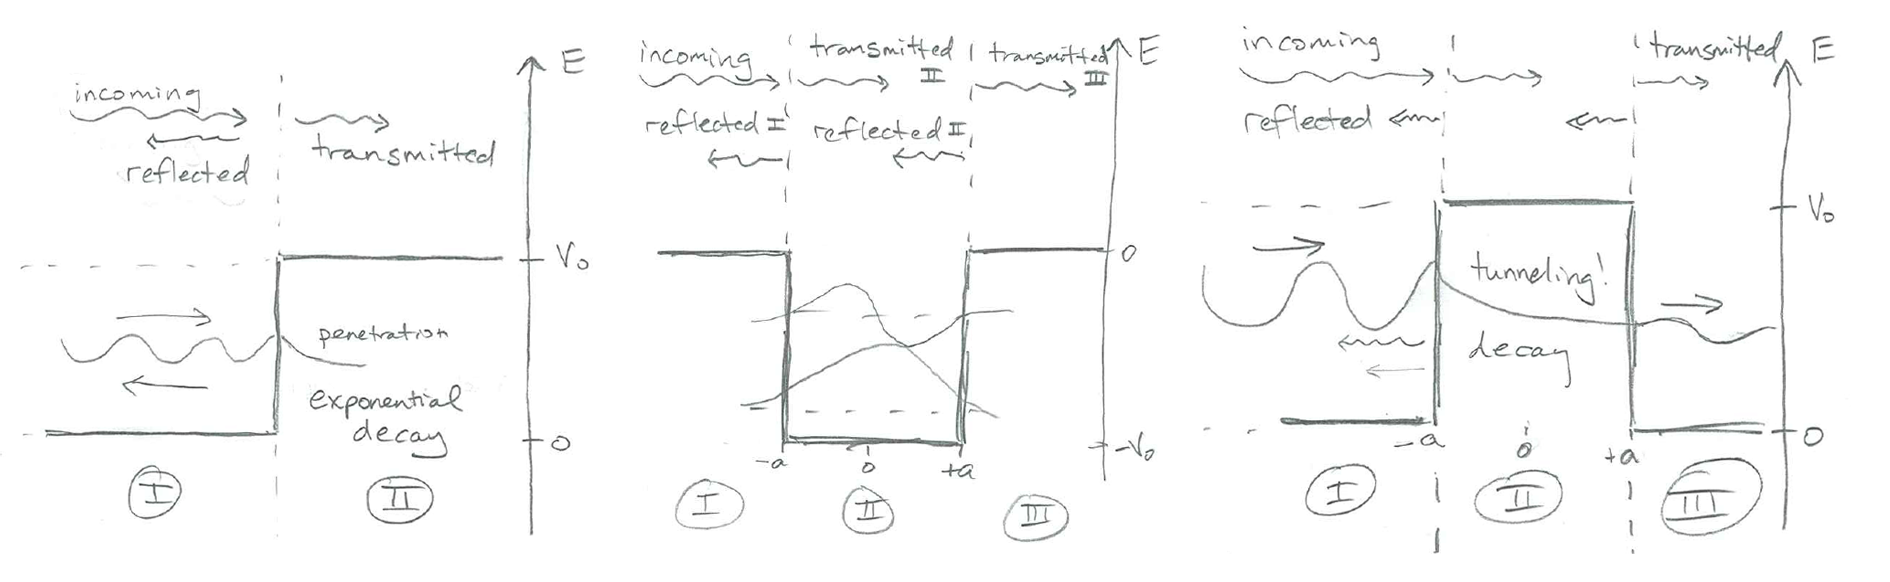 incoming
reflected
transmitted
E
V₀
penetration
exponential
decay
0
I
II
incoming
transmitted
II
transmitted
III
E
reflected I
reflected II
0
-a
0
+a
-V₀
I
II
III
incoming
transmitted
E
reflected
V₀
tunneling!
decay
-a
0
+a
0
I
II
III